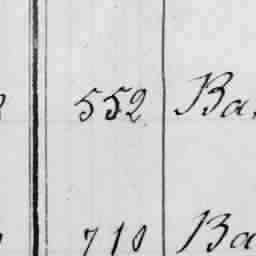 552 Ba
710 Ba